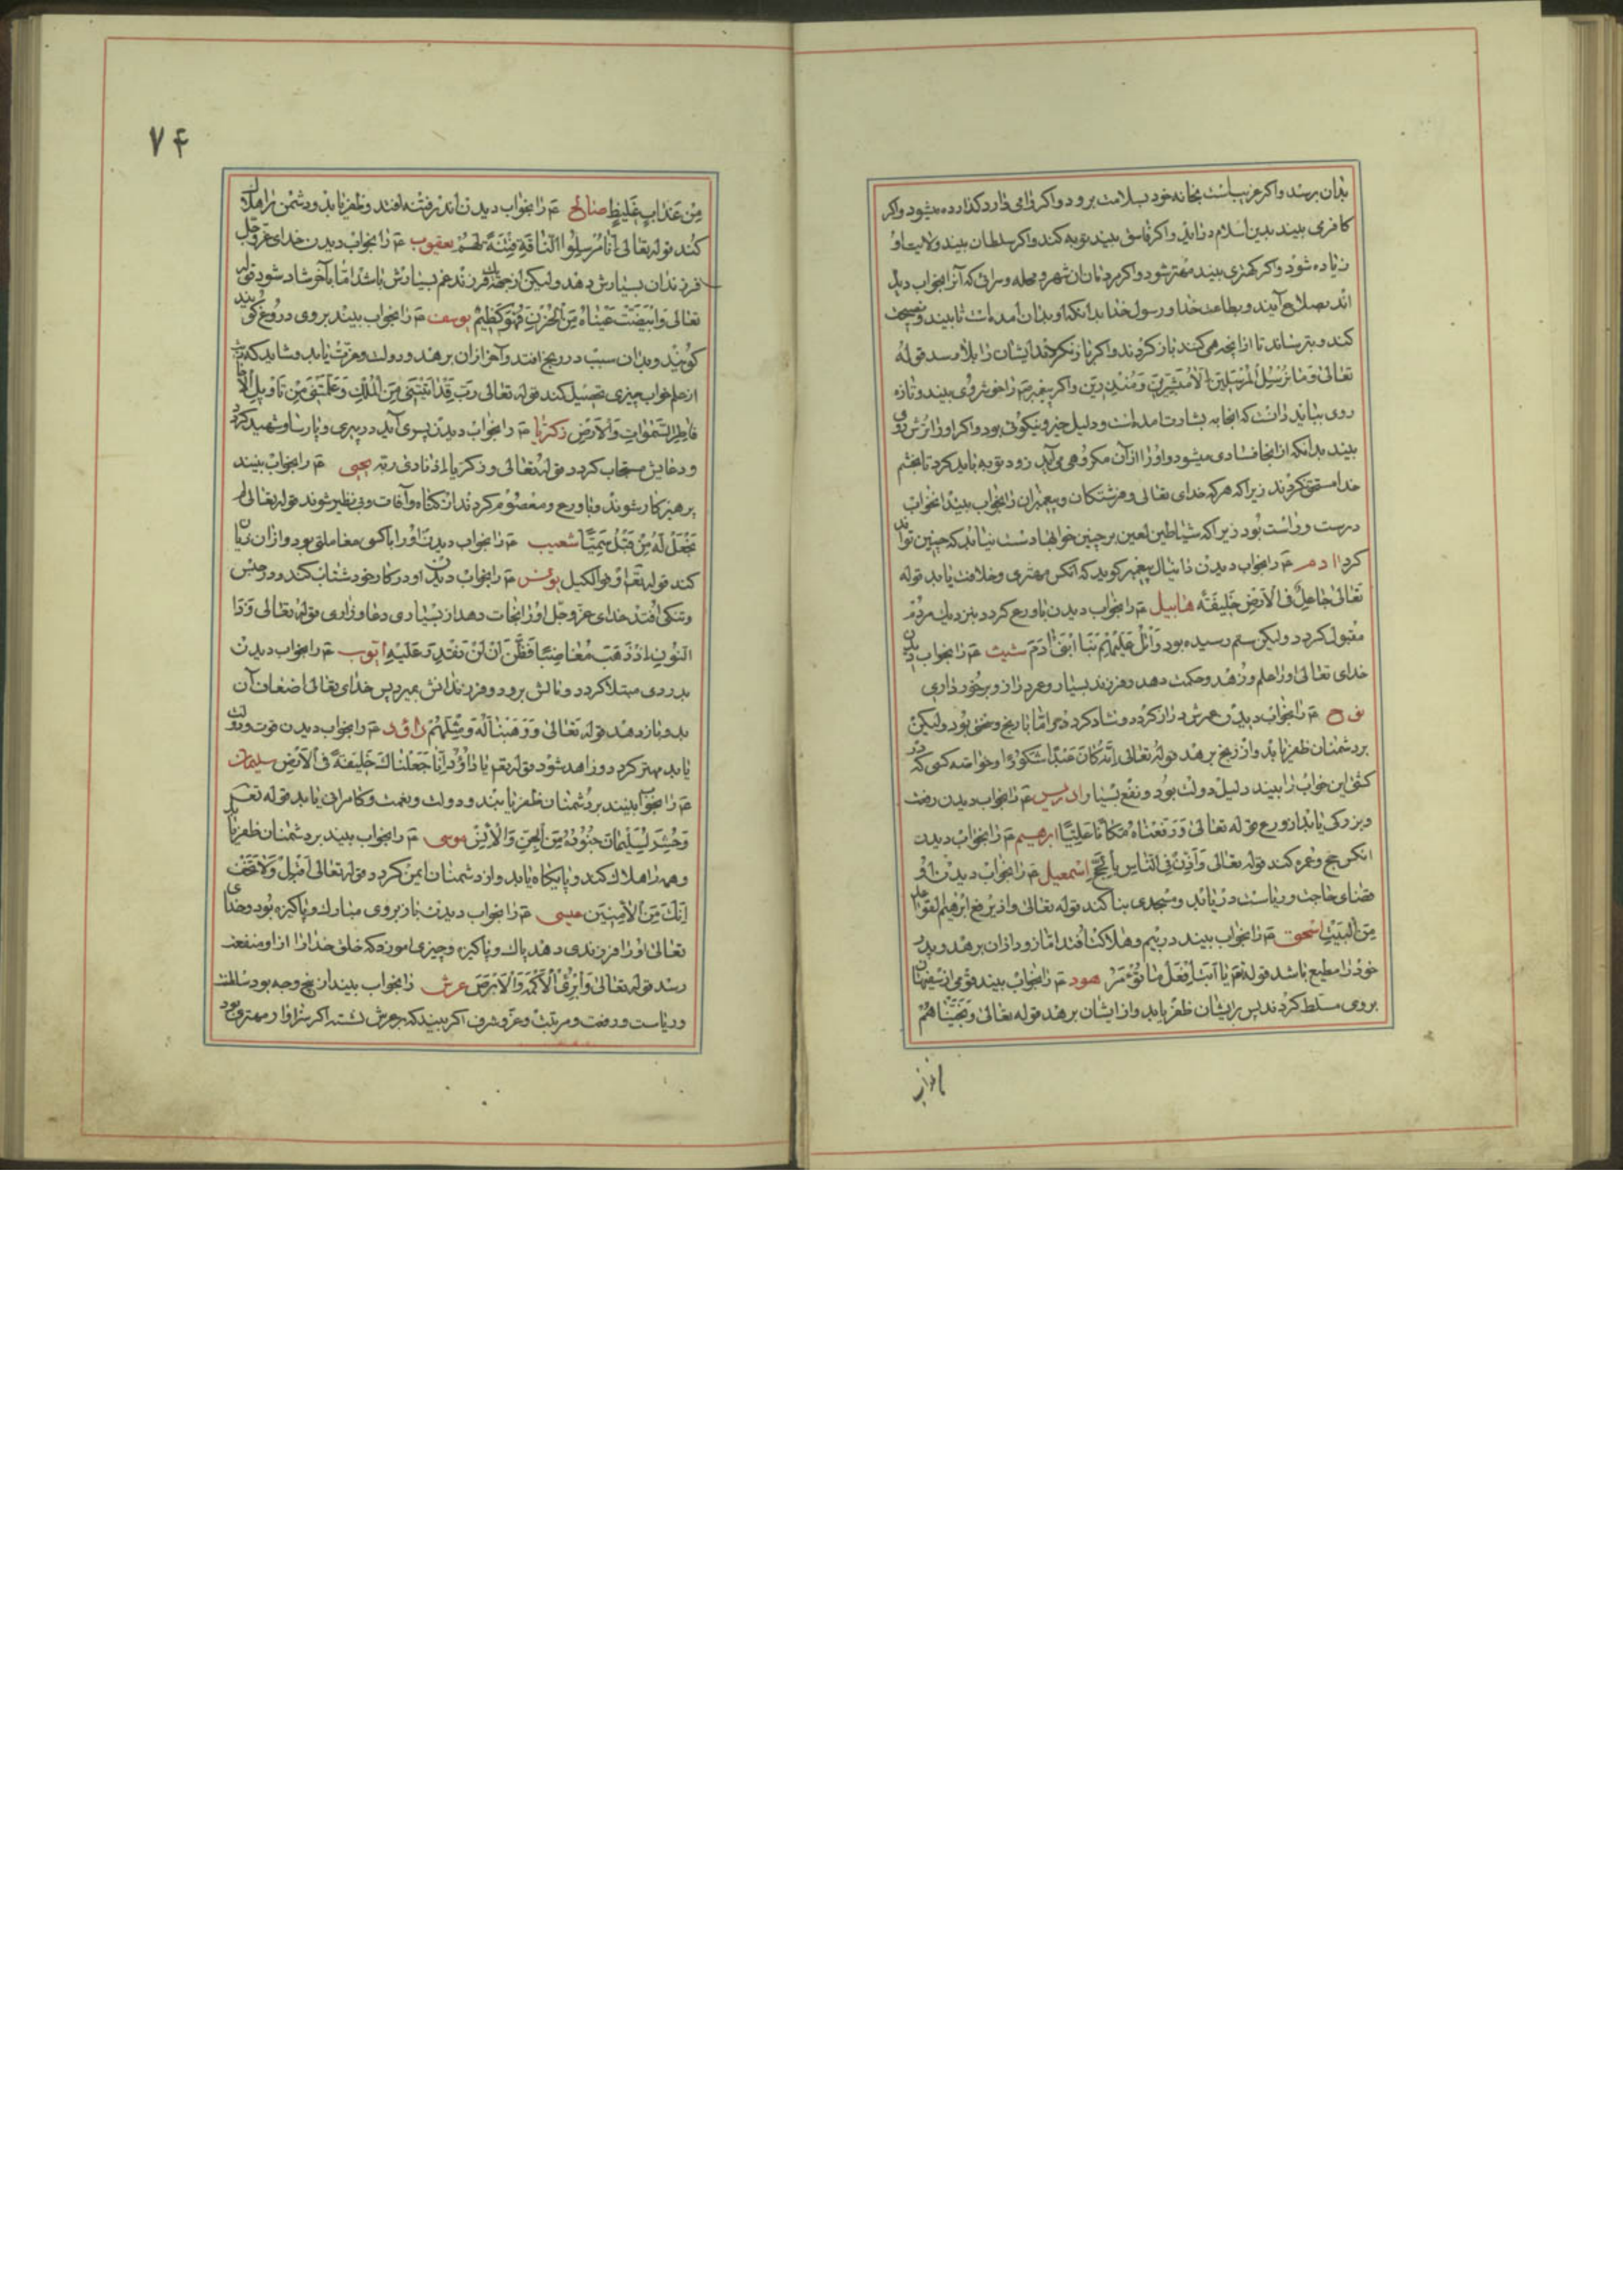 بدان برسد و اکر غریب است بخانه خود بسلامت برود و اکر وامی دارد کذارده میشود و اکر
کافری بیند بدین اسلام درآید و اکر فاسق بیند توبه کند و اکر سلطان بیند ولایت او
زیاده شود و اکر کهتری بیند مهتر شود و اکر مردمان ان شهر و محله و سرائی که آنرا بخواب دیده
اند بصلاح آیند و بطاعت خدا و رسول خدا بدانکه او بدان آمده است تا بیند و نصیحت
کند و بترساند تا از انچه می کنند باز کردند و اکر باز نکردند ایشان را بلا رسد قوله
تعالی وَمَا نُرْسِلُ الْمُرْسَلِینَ اِلّا مُبَشِّرِینَ وَمُنْذِرِینَ و اکر پیغمبر را خوش روی بیند و تازه
روی بباید دانست که انجا به بشارت آمده است و دلیل خیر و نیکوئی بود و اکر او را ترش روی
بیند بدانکه از انجا فسادی میشود و او را از آن مکروهی می آید زود توبه باید کرد تا بخشم
خدا مستحق نکردند زیرا که هر که خدای تعالی و فرشتکان و پیغمبران را بخواب بیند انخواب
درست و راست بود زیرا که شیاطین لعین بر چنین خوابها دست نیابد که چنین تواند
کرد ادم ع را بخواب دیدن دانیال پیغمبر کوید که آنکس مهتری و خلافت یابد قوله
تعالی جَاعِلٌ فِی الْاَرْضِ خَلِیفَة هابیل ع را بخواب دیدن باورع کردد بنزدیک مردم
مقبول کردد ولیکن ستم رسیده بود وَاتْلُ عَلَیْهِمْ نَبَأَ ابْنَیْ اٰدَمَ شیث ع را بخواب دیدن
خدای تعالی او را علم و زهد و حکمت دهد و فرزند بسیار و عمر دراز و برخورداری
نوح ع را بخواب دیدن عمرش دراز کردد و شاد کردد اما با رنج و سختی بود ولیکن
بر دشمنان ظفر یابد و از رنج برهد قوله تعالی اِنَّهُ کَانَ عَبْدًا شَکُورًا و خواصه کسی که در
کشتی این خواب را بیند دلیل دولت بود و نفع بسیار ادریس ع را بخواب دیدن رفعت
و بزرکی یابد از ورع قوله تعالی وَرَفَعْنَاهُ مَکَانًا عَلِیًّا ابرهیم ع را بخواب دیدن
انکس حج و عمره کند قوله تعالی وَاَذِّنْ فِی النَّاسِ بِالْحَجِّ اسمعیل ع را بخواب دیدن او
قضای حاجت و ریاست دریابد و مسجدی بنا کند قوله تعالی وَاِذْ یَرْفَعُ اِبْرٰهِیمُ الْقَوَاعِدَ
مِنَ الْبَیْتِ اسحق ع را بخواب بیند در بیم و هلاکت افتد اما زود از ان برهد و پدر
خود را مطیع باشد قوله تع یَا اَبَتِ افْعَلْ مَا تُؤْمَرُ هود ع را بخواب بیند قومی از سفیهان
بر وی مسلط کردند پس بر ایشان ظفر یابد و از ایشان برهد قوله تعالی وَنَجَّیْنَاهُمْ
۷۴
مِنْ عَذَابٍ غَلِیظٍ صالح ع را بخواب دیدن اندر فتنه افتد و ظفر یابد و دشمن را هلاک
کند قوله تعالی اِنَّا مُرْسِلُوا النَّاقَةِ فِتْنَةً لَهُمْ یعقوب ع را بخواب دیدن خدای عزوجل
فرزندان بسیارش دهد ولیکن از جهت فرزند غم بسیارش باشد اما بآخر شاد شود قوله
تعالی وَابْیَضَّتْ عَیْنَاهُ مِنَ الْحُزْنِ فَهُوَ کَظِیمٌ یوسف ع را بخواب بیند بر وی دروغ کویند
کویند و بدان سبب در رنج افتد و آخر ازان برهد و دولت و عزت یابد و شاید که
از علم خواب چیزی تحصیل کند قوله تعالی رَبِّ قَدْ اٰتَیْتَنِی مِنَ الْمُلْکِ وَعَلَّمْتَنِی مِنْ تَاْوِیلِ الْاَحَادِیثِ
فَاطِرَ السَّمٰوَاتِ وَالْاَرْضِ زکریا ع را بخواب دیدن پسری آید در پیری و پارسا و شهید کردد
و دعایش مستجاب کردد قوله تعالی و زکریا اذ نادی ربه یحیی ع را بخواب بیند
پرهیزکار شوند و باورع و معصوم کردند از کناه و آفات و بی نظیر شوند قوله تعالی لم
نَجْعَلْ لَهُ مِنْ قَبْلُ سَمِیًّا شعیب ع را بخواب دیدن او را با کسی معاملتی بود و ازان زیان
کند قوله تع اوفوا الکیل یونس ع را بخواب دیدن او در کار خود شتاب کند و در حبس
و تنکی افتد خدای عزوجل او را نجات دهد از بسیاری دعا و زاری قوله تعالی وَذَا
النُّونِ اِذْ ذَهَبَ مُغَاضِبًا فَظَنَّ اَنْ لَنْ نَقْدِرَ عَلَیْهِ ایوب ع را بخواب دیدن
بدردی مبتلا کردد و مالش برود و فرزندانش بمیرد پس خدای تعالی اضعاف آن
بدو باز دهد قوله تعالی وَوَهَبْنَا لَهُ وَمِثْلَهُمْ داود ع را بخواب دیدن قوت و دولت
یابد مهتر کردد و زاهد شود قوله تع یَا دَاوُدُ اِنَّا جَعَلْنَاکَ خَلِیفَةً فِی الْاَرْضِ سلیمان
ع را بخواب بیند بر دشمنان ظفر یابند و دولت و نعمت و کامرانی یابد قوله تع
وَحُشِرَ لِسُلَیْمَانَ جُنُودُهُ مِنَ الْجِنِّ وَالْاِنْسِ موسی ع را بخواب بیند بر دشمنان ظفر یابد
و همه را هلاک کند و پایکاه یابد و از دشمنان ایمن کردد قوله تعالی اَقْبِلْ وَلَا تَخَفْ
اِنَّکَ مِنَ الْاٰمِنِینَ عیسی ع را بخواب دیدن باز بروی مبارک و پاکیزه بود و خدای
تعالی او را فرزندی دهد پاک و پاکیزه و چیزی اموزد که خلق خدا را از او منفعت
رسد قوله تعالی وَاُبْرِئُ الْاَکْمَهَ وَالْاَبْرَصَ عرش را بخواب بیند از پنج وجه بود سلطنت
و ریاست و رفعت و مرتبت و عز و شرف اکر بیند که بر عرش نشسته اکر سزاوار مهتری بود